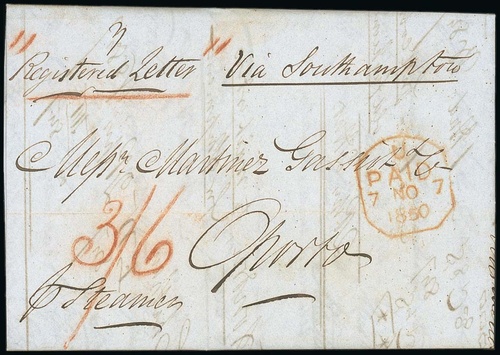 Registered Letter Via Southampton
Messrs Martinez Gassiot & Co
U
PAID
7 NO 7
1850
3/6
Oporto
p Steamer